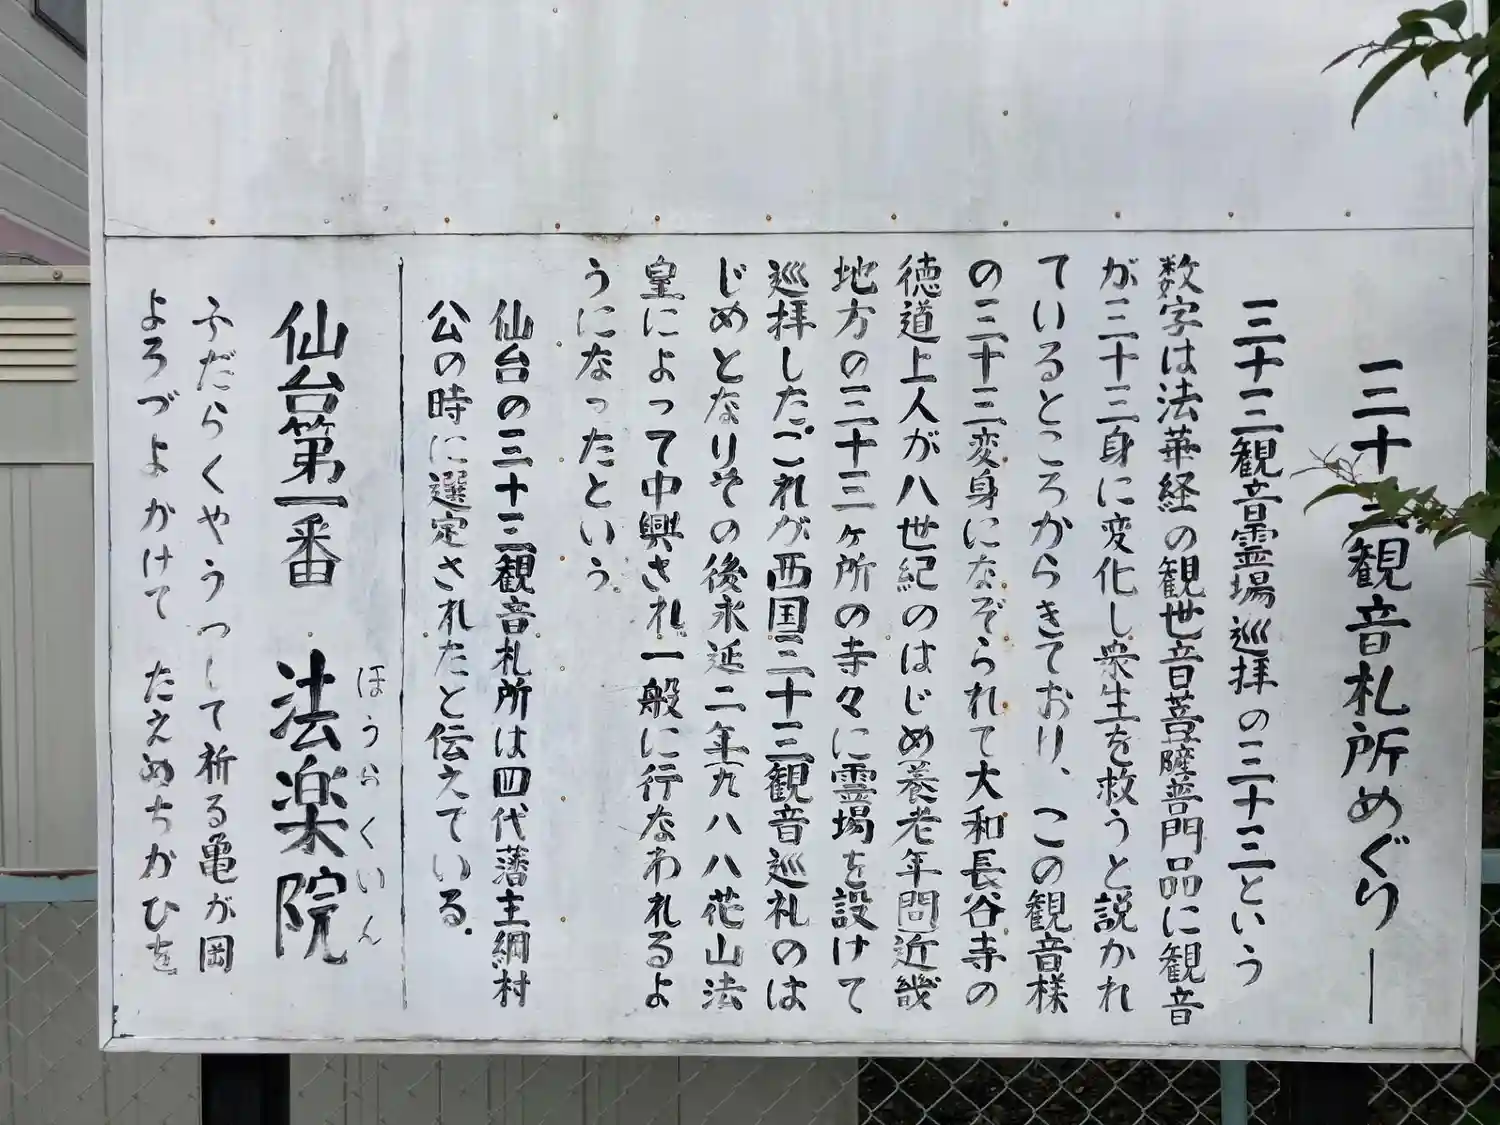 三十三観音札所めぐり―
三十三観音霊場巡拝の三十三という
数字は法華経の観世音菩薩普門品に観音
が三十三身に変化し衆生を救うと説かれ
ているところからきており、この観音様
の三十三変身になぞられて大和長谷寺の
徳道上人が八世紀のはじめ養老年間近畿
地方の三十三ヶ所の寺々に霊場を設けて
巡拝した。これが西国三十三観音巡礼のは
じめとなりその後永延二年九八八花山法
皇によって中興され一般に行なわれるよ
うになったという。
仙台の三十三観音札所は四代藩主綱村
公の時に選定されたと伝えている。
仙台第一番 法楽院
ほうらくいん
ふだらくやうつして祈る亀が岡
よろづよかけて たえぬちかひを